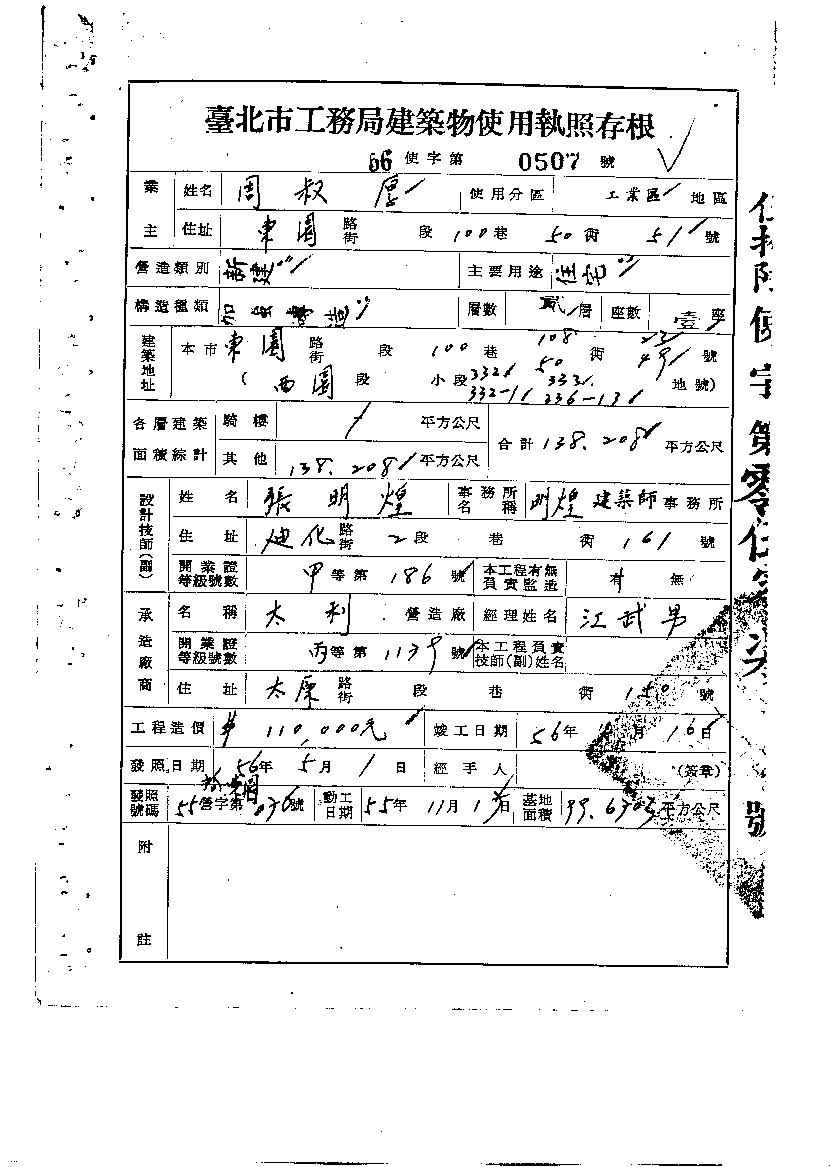 臺北市工務局建築物使用執照存根
56 使字第 0507 號
業主 姓名 周叔厚 使用分區 工業區 地區
住址 東園 路街 段 100 巷 50 街 51 號
營造類別 新建 主要用途 住宅
構造種類 加強磚造 層數 貳 層 座數 壹 座
建築地址 本市 東園 路街 段 100 巷 50 街 49 號
(西園 段 小段 332 333 地號)
332-1 336-13
各層建築面積綜計 騎樓 平方公尺 合計 138.208 平方公尺
其他 138.208 平方公尺
設計技師(副) 姓名 張明煌 事務所名稱 明煌 建築師 事務所
住址 迪化 路街 2 段 巷 街 161 號
開業證等級號數 甲 等第 186 號 本工程有無負責監造 有 無
承造廠商 名稱 太利 營造廠 經理姓名 江武男
開業證等級號數 丙 等第 1139 號 本工程負責技師(副)姓名
住址 太原 路街 段 巷 街 150 號
工程造價 110,000元 竣工日期 56 年 月 16 日
發照日期 56 年 5 月 1 日 經手人 (簽章)
發照號碼 55 營字第 036 號 動工日期 55 年 11 月 1 日 基地面積 99.6303 平方公尺
附註